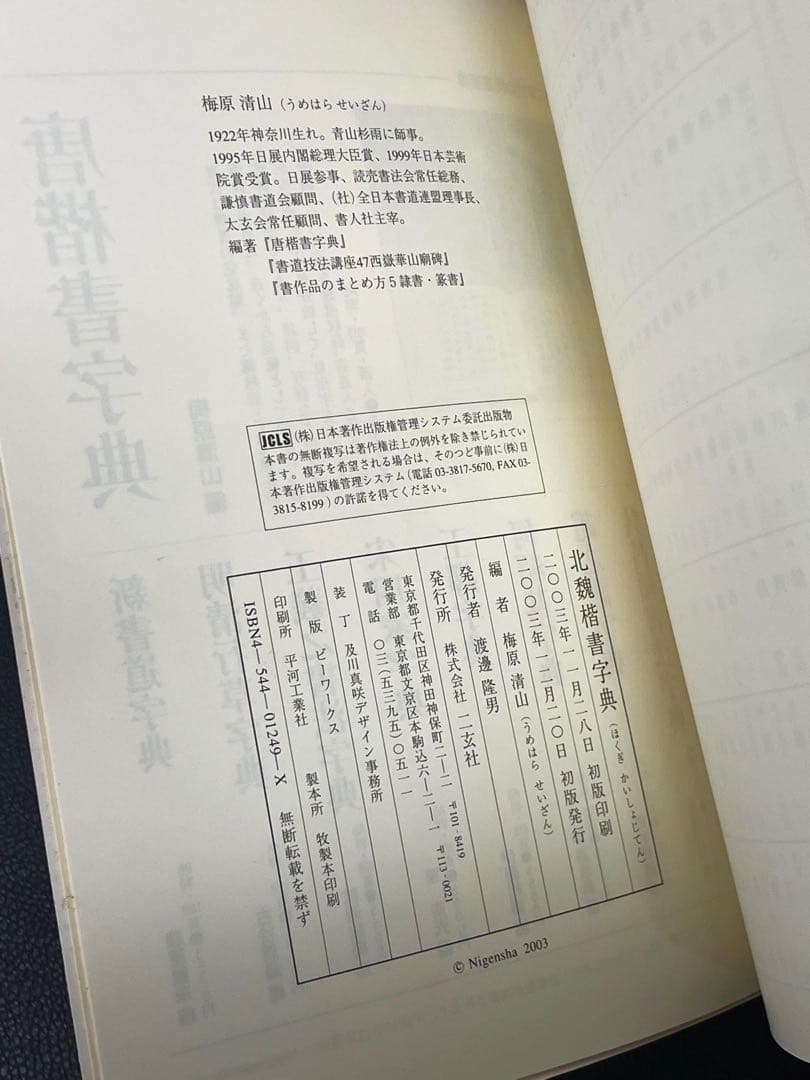 梅原 清山（うめはら せいざん）
1922年神奈川生れ。青山杉雨に師事。
1995年日展内閣総理大臣賞、1999年日本芸術
院賞受賞。日展参事、読売書法会常任総務、
謙慎書道会顧問、（社）全日本書道連盟理事長、
太玄会常任顧問、書人社主宰。
編著『唐楷書字典』
『書道技法講座47西嶽華山廟碑』
『書作品のまとめ方5隷書・篆書』
JCLS （株）日本著作出版権管理システム委託出版物
本書の無断複写は著作権法上の例外を除き禁じられてい
ます。複写を希望される場合は、そのつど事前に（株）日
本著作出版権管理システム（電話 03-3817-5670, FAX 03-
3815-8199）の許諾を得てください。
北魏楷書字典（ほくぎ かいしょじてん）
二〇〇三年一一月二八日 初版印刷
二〇〇三年一二月二〇日 初版発行
編者 梅原清山（うめはら せいざん）
発行者 渡邊隆男
発行所 株式会社 二玄社
東京都千代田区神田神保町二―二 〒101-8419
営業部 東京都文京区本駒込六―二―一 〒113-0021
電話 〇三（五三九五）〇五一一
装丁 及川真咲デザイン事務所
製版 ビーワークス 製本所 牧製本印刷
印刷所 平河工業社
ISBN4―544―01249―X 無断転載を禁ず
© Nigensha 2003
唐楷書字典